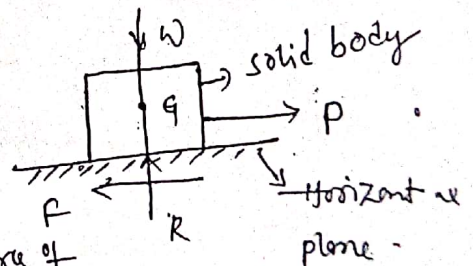 W
solid body
G
P
F
Horizontal
R
plane.